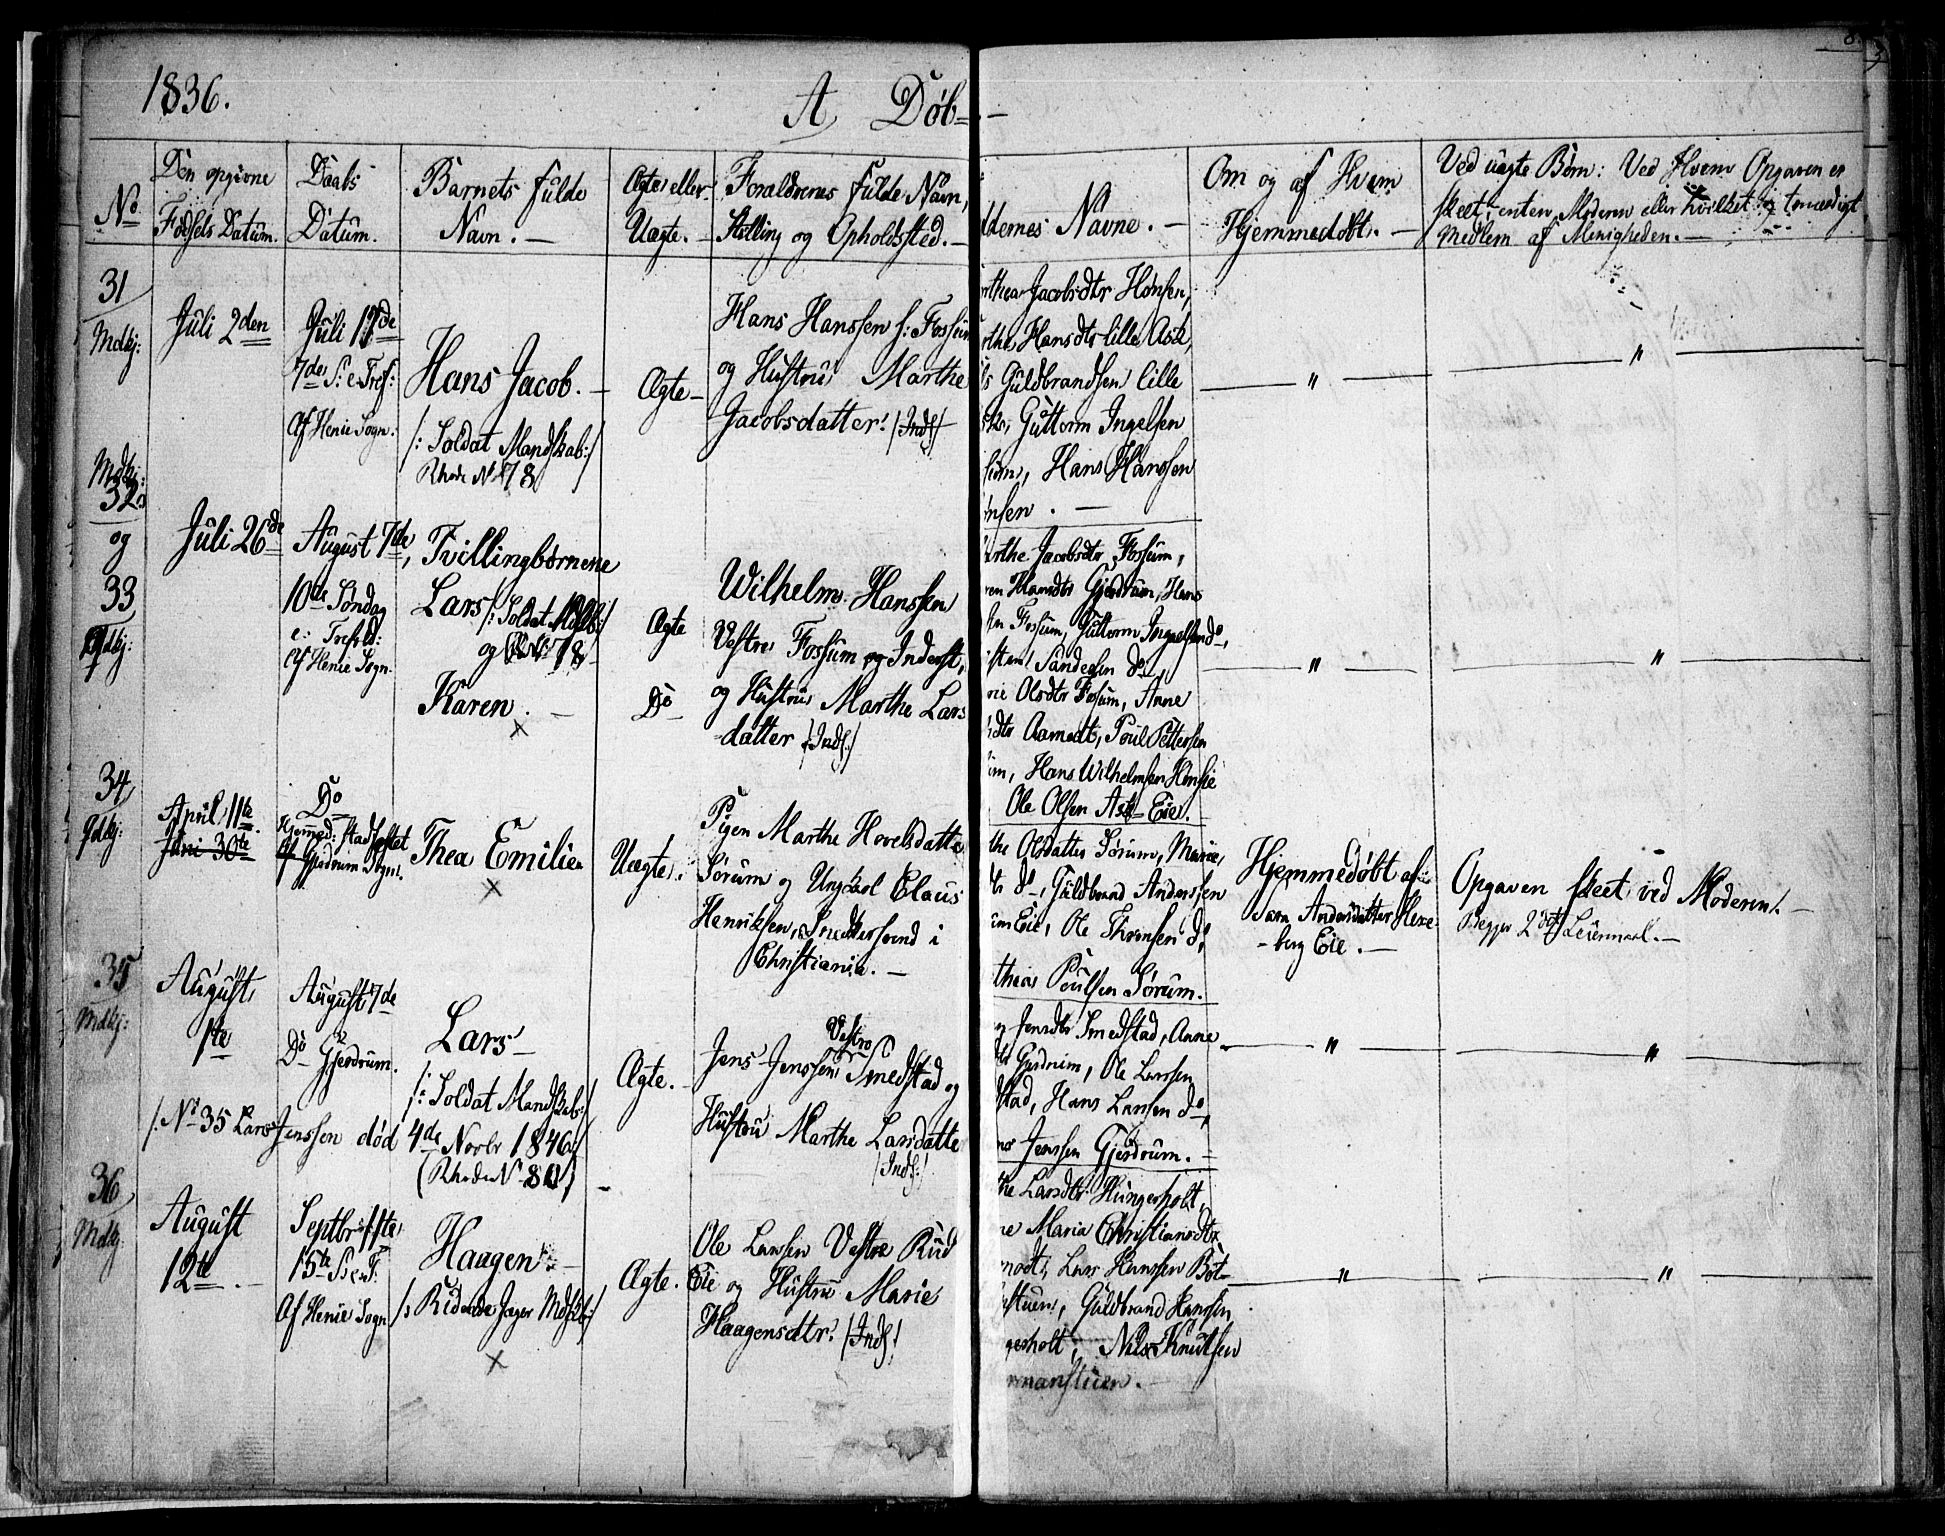 1836.
A Døb=
No
Den opgivne
Fødsels Datum.
Daabs
Datum.
Barnets fulde
Navn. —
Ægte eller
Uægte. —
Forældrenes fulde Navn,
Stilling og Opholdssted. —
ddernes Navne. —
Om og af Hvem
Hjemmedøbt. —
Ved uægte Børn: Ved Hvem Opgaven er
skeet, enten Moderen eller hvilket
Medlem af Menigheden. —
31
Mdkj:
Juli 2den
Juli 17de
7de S: e. Tref:
Af Henie Sogn.
Hans Jacob. —
/: Soldat Mandskab:/
Rhode No 78
Ægte —
Hans Hanssen f: Fossum
og Hustru Marthe
Jacobsdatter. /Inds/
rthea Jacobsdtr Hønsen,
rthe Hansdtr lille Ask,
ls Guldbrandsen lille
sk, Guttorm Ingelsen
sum, Hans Hanssen
ønsen. —
— " —
— " —
Mdkj:
32
og
33
Qdkj:
Juli 26de
August 7de,
10de Søndag
e: Trefold:
Af Henie Sogn.
Tvillingbørnene
Lars /: Soldat Mdskb:/
og 78
Karen. —
x
Ægte
Do
Wilhelm Hanssen
Vestre Fossum og Inderst,
og Hustru Marthe Lars
=datter /:Inds:/
arthe Jacobsdtr Fossum,
ren Hansdtr Gjerdrum, Hans
sen Fossum, Guttorm Ingelsen do,
isten Sandersen do,
rie Olsdtr Fossum, Anne
sdtr Aamodt, Poul Pettersen
um, Hans Wilhelmsen Hønsie
Ole Olsen Ask Eie.
— " —
— " —
34
Qdkj:
April 11te.
Juni 30te
Do
Hjemmed: stadfæstet
Af Gjerdrum Sogn.
Thea Emilie
x
Uægte.
Pigen Marthe Hovelsdatte
Sørum og Ungkarl Claus
Henriksen, Snedkersvend i
Christiania. —
the Olsdatter Sørum, Marie,
dtr do, Guldbrand Andersen
um Eie, Ole Thronsen do,
thias Poulsen Sørum.
Hjemmedøbt af
Sara Andersdatter Hexe-
-berg Eie. —
Opgaven skeet ved Moderen. —
Begges 2det Leiermaal. —
35
Mdkj:
August
1te
August 7de
Do Gjerdrum.
Lars —
/: Soldat Mandskab:/
/: No 35 Lars Jenssen død 4de Novbr 1846
(Rhode No 80)
Ægte. —
Vestre
Jens Jenssen Smedstad og
Hustru Marthe Larsdatte
/Inds:/
g Jensdtr Smedstad, Anne
dtr Gjerdrum, Ole Larssen
stad, Hans Larssen do,
ns Jenssen Gjerdrum. —
— " —
— " —
36
Mdkj
August
12te. —
Septbr 11te,
15te S: e. T:
Af Henie Sogn
Haagen —
/: Ridende Jæger Mdskb:/
x
Ægte.
Ole Larsen Vestre Rud
Eie og Hustru Marie
Haagensdtr. /Inds/
the Larsdtr Hungerholt,
ne Maria Christiansdtr
modt, Lars Hanssen Bøt-
stuen, Guldbrand Hanssen
gerholt, Nils Knutsen
rmanstuen. —
— " —
— " —